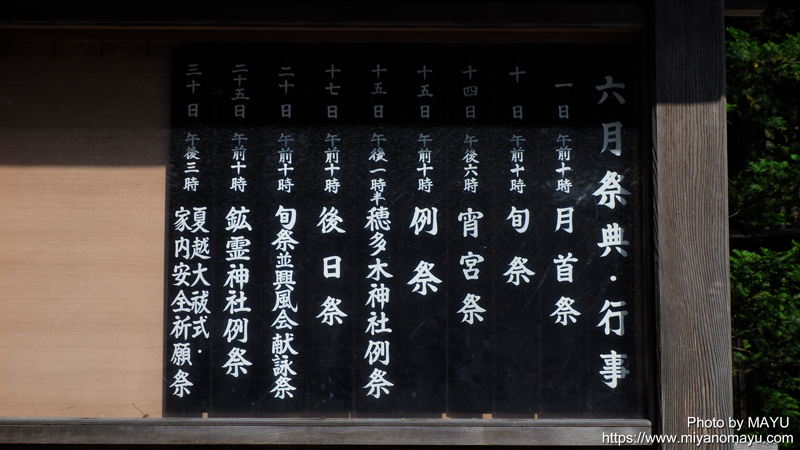 六月祭典・行事
一日 午前十時 月首祭
十日 午前十時 旬祭
十四日 午後六時 宵宮祭
十五日 午前十時 例祭
十五日 午後一時半 穂多木神社例祭
十七日 午前十時 後日祭
二十日 午前十時 旬祭並興風会献詠祭
二十五日 午前十時 鉱霊神社例祭
三十日 午後三時 夏越大祓式・
家内安全祈願祭
Photo by MAYU
https://www.miyanomayu.com/